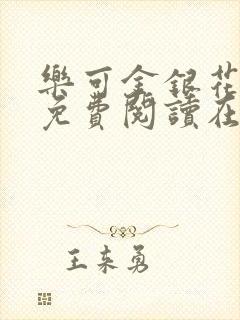 樂可金銀花
免費閱讀在
王来勇